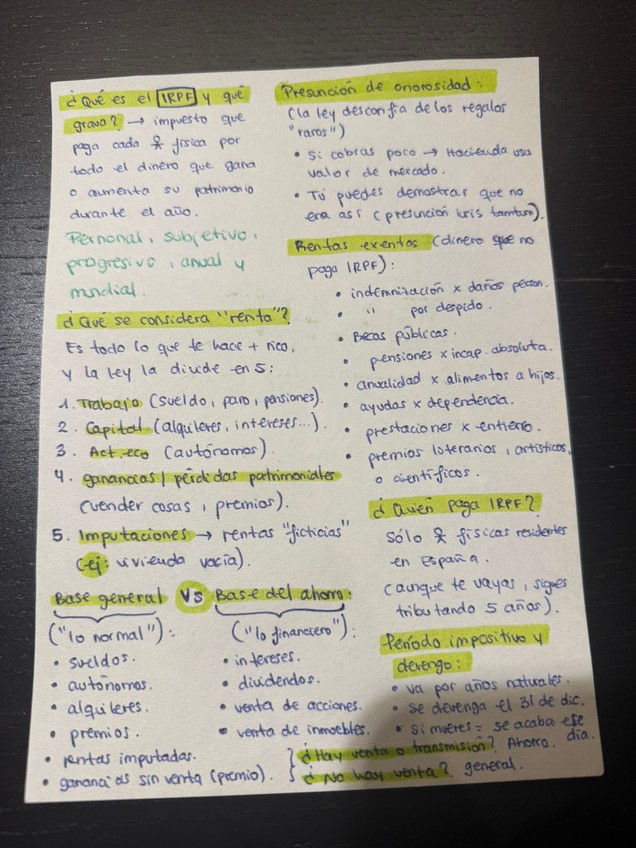 ¿Qué es el IRPF y qué
grava? → impuesto que
paga cada física por
todo el dinero que gana
o aumenta su patrimonio
durante el año.
Personal, subjetivo,
progresivo, anual y
mundial.
¿Qué se considera "renta"?
Es todo lo que te hace + rico,
y la ley la divide en 5:
1. Trabajo (sueldo, paro, pensiones).
2. Capital (alquileres, intereses...).
3. Act. eco (autónomos).
4. ganancias/ pérdidas patrimoniales
(vender cosas, premios).
5. Imputaciones → rentas "ficticias"
(ej: vivienda vacía).
Base general VS Base del ahorro:
("lo normal"):
• sueldos.
• autónomos.
• alquileres.
• premios.
• rentas imputadas.
• ganancias sin venta (premio).
("lo financiero"):
• intereses.
• dividendos.
• venta de acciones.
• venta de inmuebles.
¿Hay venta o transmisión? Ahorro.
¿No hay venta? general.
Presunción de onorosidad:
(la ley desconfía de los regalos
"raros")
• Si cobras poco → Hacienda usa
valor de mercado.
• Tú puedes demostrar que no
era así (presunción iuris tamtum).
Rentas exentas (dinero que no
paga IRPF):
• indemnización x daños person.
• " por despido.
• Becas públicas.
• pensiones x incap. absoluta.
• anualidad x alimentos a hijos.
• ayudas x dependencia.
• prestaciones x entierro.
• premios loterarios, artísticos,
o científicos.
¿Quién paga IRPF?
Sólo físicas residentes
en España.
(aunque te vayas, sigues
tributando 5 años).
Período impositivo y
devengo:
• va por años naturales.
• se devenga el 31 de dic.
• si mueres = se acaba ese
día.